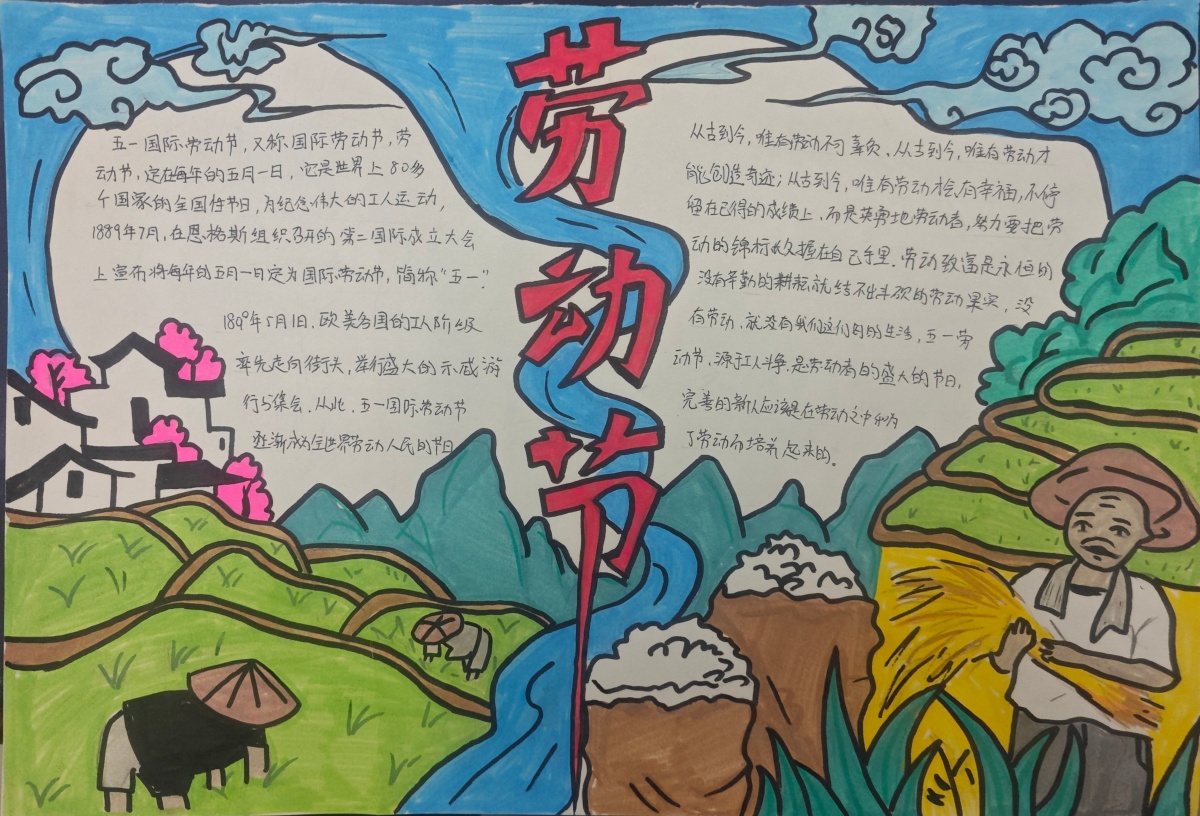 劳动节
五一国际劳动节，又称国际劳动节，劳
动节，定在每年的五月一日，它是世界上80多
个国家的全国性节日，为纪念伟大的工人运动，
1889年7月，在恩格斯组织召开的第二国际成立大会
上宣布将每年的五月一日定为国际劳动节，简称“五一”。
1890年5月1日，欧美各国的工人阶级
率先走向街头，举行盛大的示威游
行与集会，从此，五一国际劳动节
逐渐成为全世界劳动人民的节日
从古到今，唯有劳动不可辜负、从古到今，唯有劳动才
能创造奇迹；从古到今，唯有劳动才会有幸福，不停
留在已得的成绩上，而是英勇地劳动者，努力要把劳
动的锦标永久握在自己手里。劳动致富是永恒的
没有辛勤的耕耘就结不出丰硕的劳动果实，没
有劳动，就没有我们这们的生活，五一劳
动节，源于工人斗争，是劳动者的盛大的节日，
完善的新人应该是在劳动之中和为
了劳动而培养起来的。